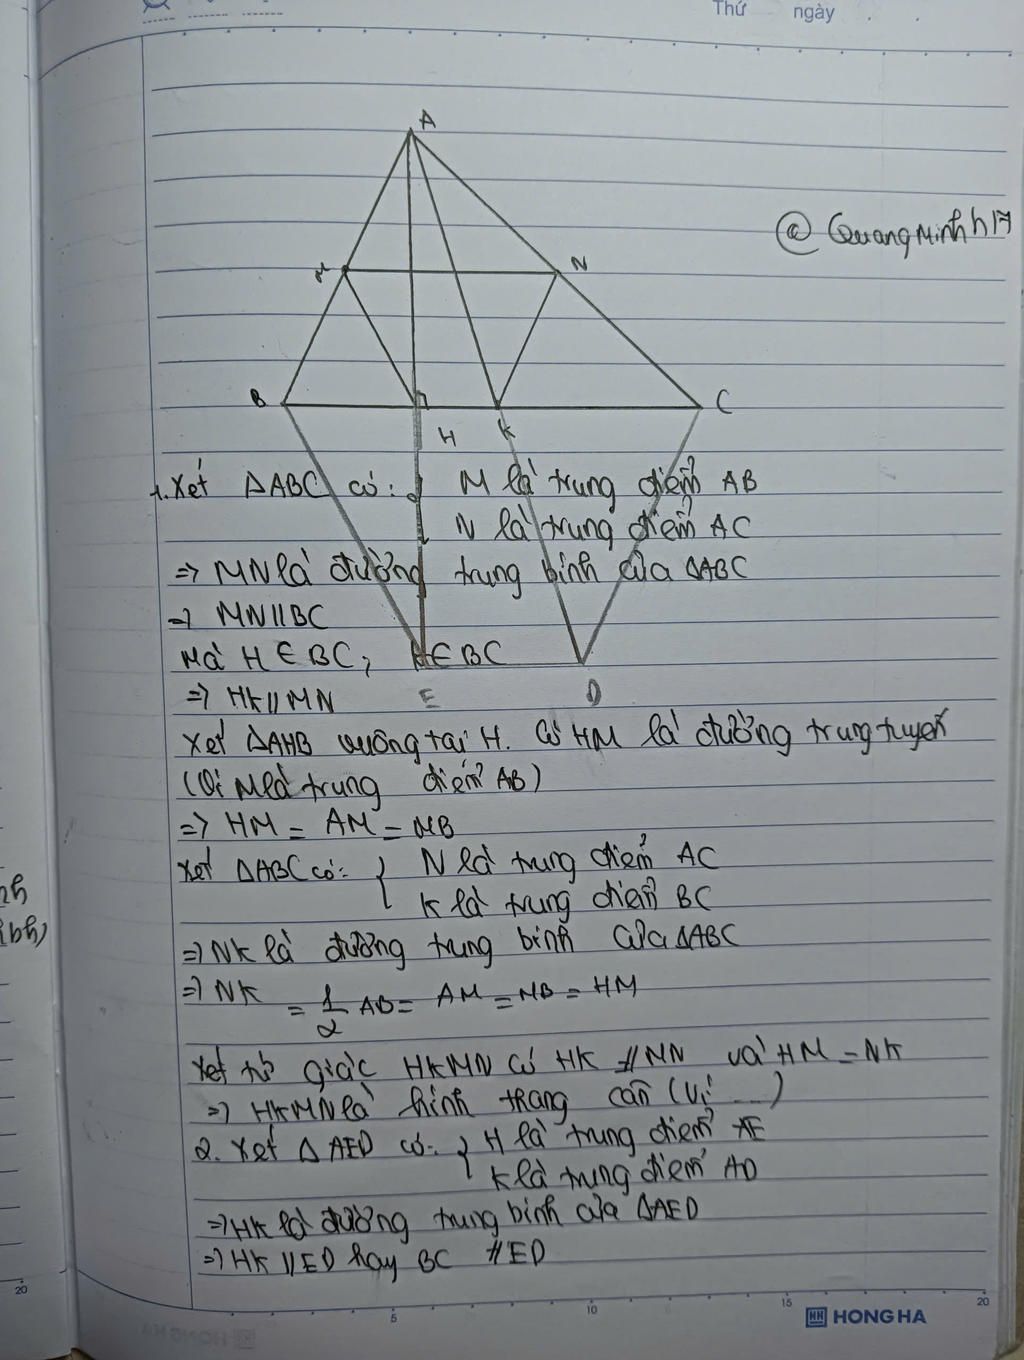 Thứ ngày
A
@QuangMinhh17
M N
B C
H K
1. Xét ΔABC có: { M là trung điểm AB
N là trung điểm AC
=> MN là đường trung bình của ΔABC
=> MN // BC
Mà H ∈ BC; K ∈ BC
=> HK // MN
E D
Xét ΔAHB vuông tại H. Có HM là đường trung tuyến
(Vì M là trung điểm AB)
=> HM = AM = MB
Xét ΔABC có: { N là trung điểm AC
K là trung điểm BC
=> NK là đường trung bình của ΔABC
=> NK = 1/2 AB = AM = MB = HM
Xét tứ giác HKMN có HK // MN và HM = NK
=> HKMN là hình thang cân (Vì ...)
2. Xét ΔAED có: { H là trung điểm AE
K là trung điểm AD
=> HK là đường trung bình của ΔAED
=> HK // ED hay BC // ED
20
5 10 15 20
HONG HA